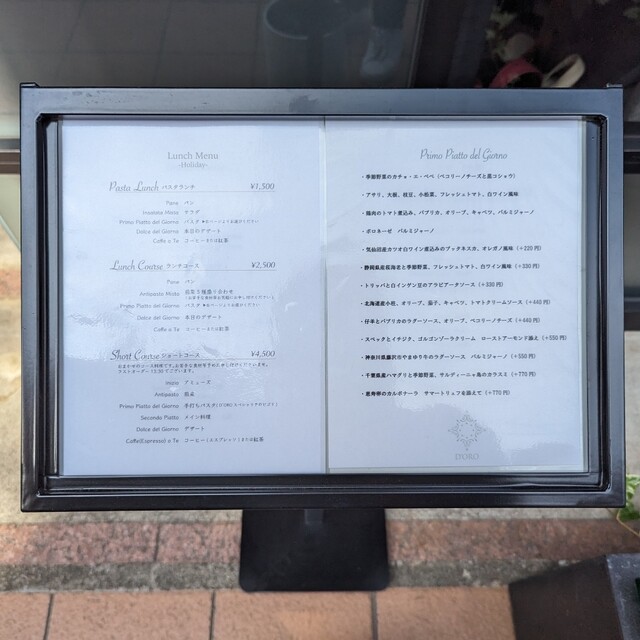 Lunch Menu
-Holiday-
Pasta Lunch パスタランチ ¥1,500
Pane パン
Insalata Mista サラダ
Primo Piatto del Giorno パスタ ※右ページよりお選びください
Dolce del Giorno 本日のデザート
Caffe o Te コーヒーまたは紅茶
Lunch Course ランチコース ¥2,500
Pane パン
Antipasto Misto 前菜5種盛り合わせ
Primo Piatto del Giorno パスタ ※右ページよりお選びください
Dolce del Giorno 本日のデザート
Caffe o Te コーヒーまたは紅茶
Short Course ショートコース ¥4,500
Inizio アミューズ
Antipasto 前菜
Primo Piatto del Giorno 手打ちパスタ
Secondo Piatto メイン料理
Dolce del Giorno デザート
Caffe(Espresso) o Te コーヒー(エスプレッソ)または紅茶
Primo Piatto del Giorno
・季節野菜のカチョ・エ・ペペ (ペコリーノチーズと黒コショウ)
・アサリ、大根、枝豆、小松菜、フレッシュトマト、白ワイン風味
・鶏肉のトマト煮込み、パプリカ、オリーブ、キャベツ、パルミジャーノ
・ボロネーゼ パルミジャーノ
・気仙沼産カツオ白ワイン煮込みのプッタネスカ、オレガノ風味 (+220円)
・静岡県産桜海老と季節野菜、フレッシュトマト、白ワイン風味 (+330円)
・トリッパと白インゲン豆のアラビアータソース (+330円)
・北海道産小柱、オリーブ、茄子、キャベツ、トマトクリームソース (+440円)
・仔羊とパプリカのラグーソース、オリーブ、ペコリーノチーズ (+440円)
・スペックとイチジク、ゴルゴンゾーラクリーム ローストアーモンド添え (+550円)
・神奈川県藤沢市やまゆり牛のラグーソース パルミジャーノ (+550円)
・千葉県産ハマグリと季節野菜、サルディーニャ島のカラスミ (+770円)
・恵寿卵のカルボナーラ サマートリュフを添えて (+770円)
D'ORO